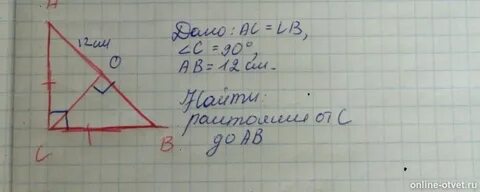 A
12см
O
C
B
Дано: AC = LB,
∠C = 90°,
AB = 12 см.
Найти:
расстояние от C
до AB
online-otvet.ru